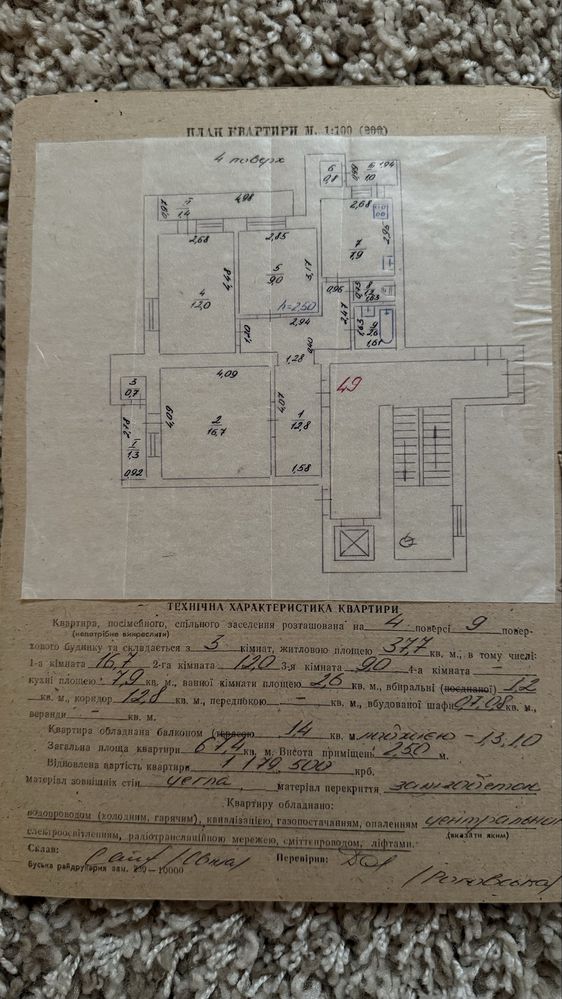 ПЛАН КВАРТИРИ М. 1:100 (200)
4 поверх
6
0,8
0,99
1,0
1,94
0,97
I
1,4
4,98
2,68
2,68
2,85
2,95
4
12,0
4,48
5
9,0
3,17
7
7,9
h=2,50
0,96
0,73
8
1,2
1,63
2,94
2,47
1,20
1,63
2,6
1,61
0,40
1,28
4,09
49
3
0,7
4,09
2
16,7
4,07
1
12,8
2,78
I
1,3
0,92
1,58
ТЕХНІЧНА ХАРАКТЕРИСТИКА КВАРТИРИ
Квартира, посімейного, спільного заселення розташована на 4 поверсі 9 повер-
(непотрібне викреслити)
хового будинку та складається з 3 кімнат, житловою площею 37,7 кв. м., в тому числі:
1-а кімната 16,7 2-га кімната 12,0 3-я кімната 9,0 4-а кімната –
кухні площею 7,9 кв. м., ванної кімнати площею 2,6 кв. м., вбиральні (поєднаної) 1,2
кв. м., коридор 12,8 кв. м., передпокою – кв. м., вбудованої шафи 0,7;0,8 кв. м.,
веранди – кв. м.
Квартира обладнана балконом (терасою) 1,4 кв. м. лоджією – 1,3; 1,0
Загальна площа квартири 67,4 кв. м. Висота приміщень 2,50 м.
Відновлена вартість квартири 1 179 500 крб.
матеріал зовнішніх стін цегла, матеріал перекриття залізобетон
Квартиру обладнано:
водопроводом (холодним, гарячим), каналізацією, газопостачанням, опаленням центральном
(вказати яким)
електроосвітленням, радіотрансляційною мережею, сміттєпроводом, ліфтами.
Склав: Перевірив:
Буська райдрукарня зам. –10000